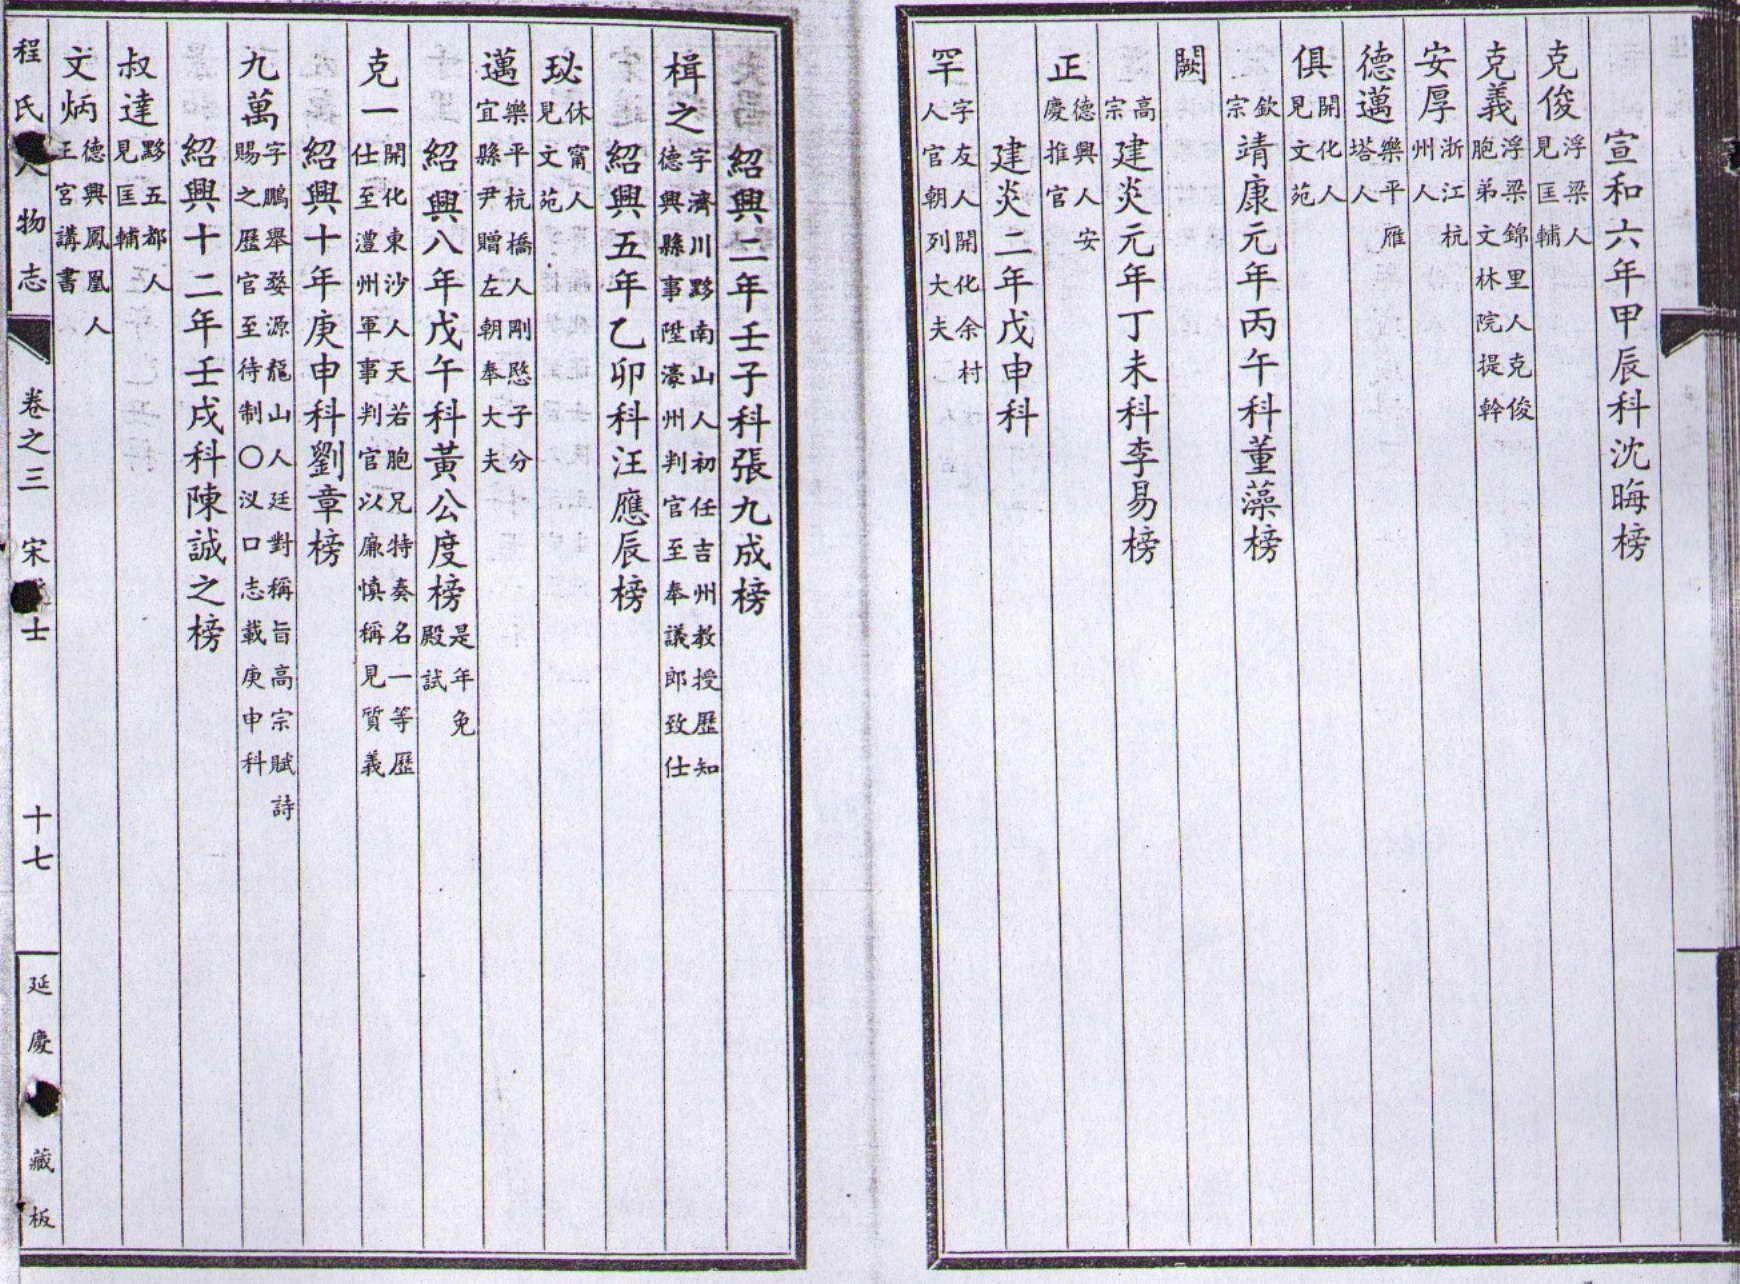 宣和六年甲辰科沈晦榜
克俊浮梁人見匡輔
克義浮梁錦里人克俊胞弟文林院提幹
安厚浙江杭州人
德邁樂平雁塔人
俱開化人見文苑
闕
欽宗靖康元年丙午科董藻榜
高宗建炎元年丁未科李易榜
正德興人安慶推官
建炎二年戊申科
罕字友人開化余村人官朝列大夫
紹興二年壬子科張九成榜
楫之字濟川黟南山人初任吉州教授歷知德興縣事陞濠州判官至奉議郎致仕
紹興五年乙卯科汪應辰榜
珌休甯人見文苑
邁樂平杭橋人剛愍子分宜縣尹贈左朝奉大夫
紹興八年戊午科黃公度榜是年免殿試
克一開化東沙人天若胞兄特奏名一等歷仕至澧州軍事判官以廉慎稱見質義
紹興十年庚申科劉章榜
九萬字鵬舉婺源龍山人廷對稱旨高宗賦詩賜之歷官至待制〇汊口志載庚申科
紹興十二年壬戌科陳誠之榜
叔達黟五都人見匡輔
文炳德興鳳凰人王宮講書
程氏人物志 卷之三 宋 士 十七 延慶 藏板